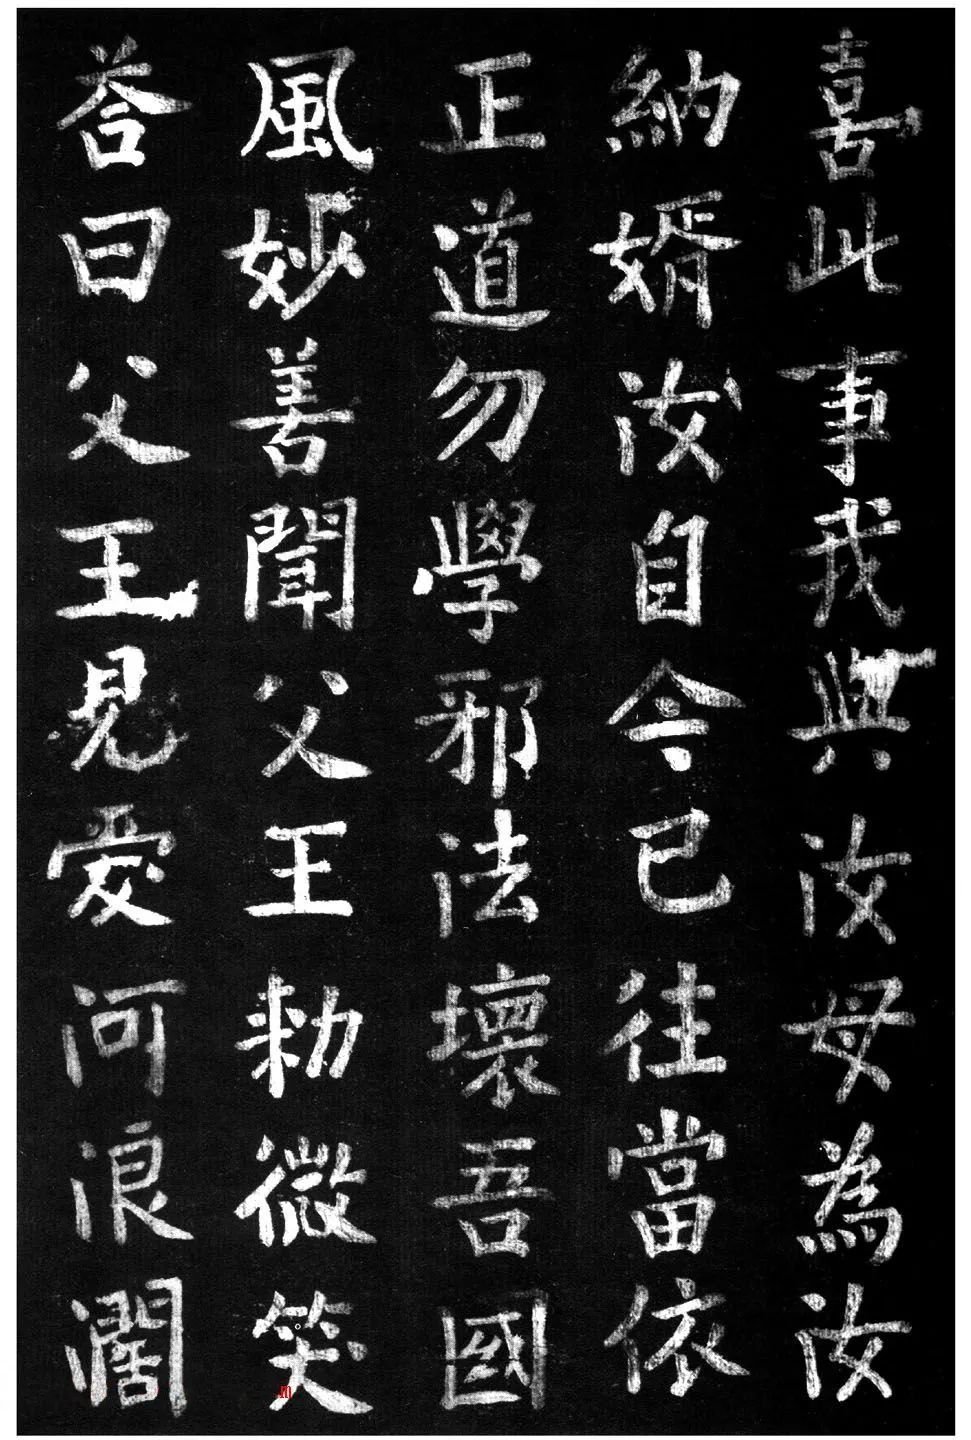 喜此事我與汝母為汝
納婿汝自今已往當依
正道勿學邪法壞吾國
風妙善聞父王勑微笑
荅曰父王見愛河浪濶